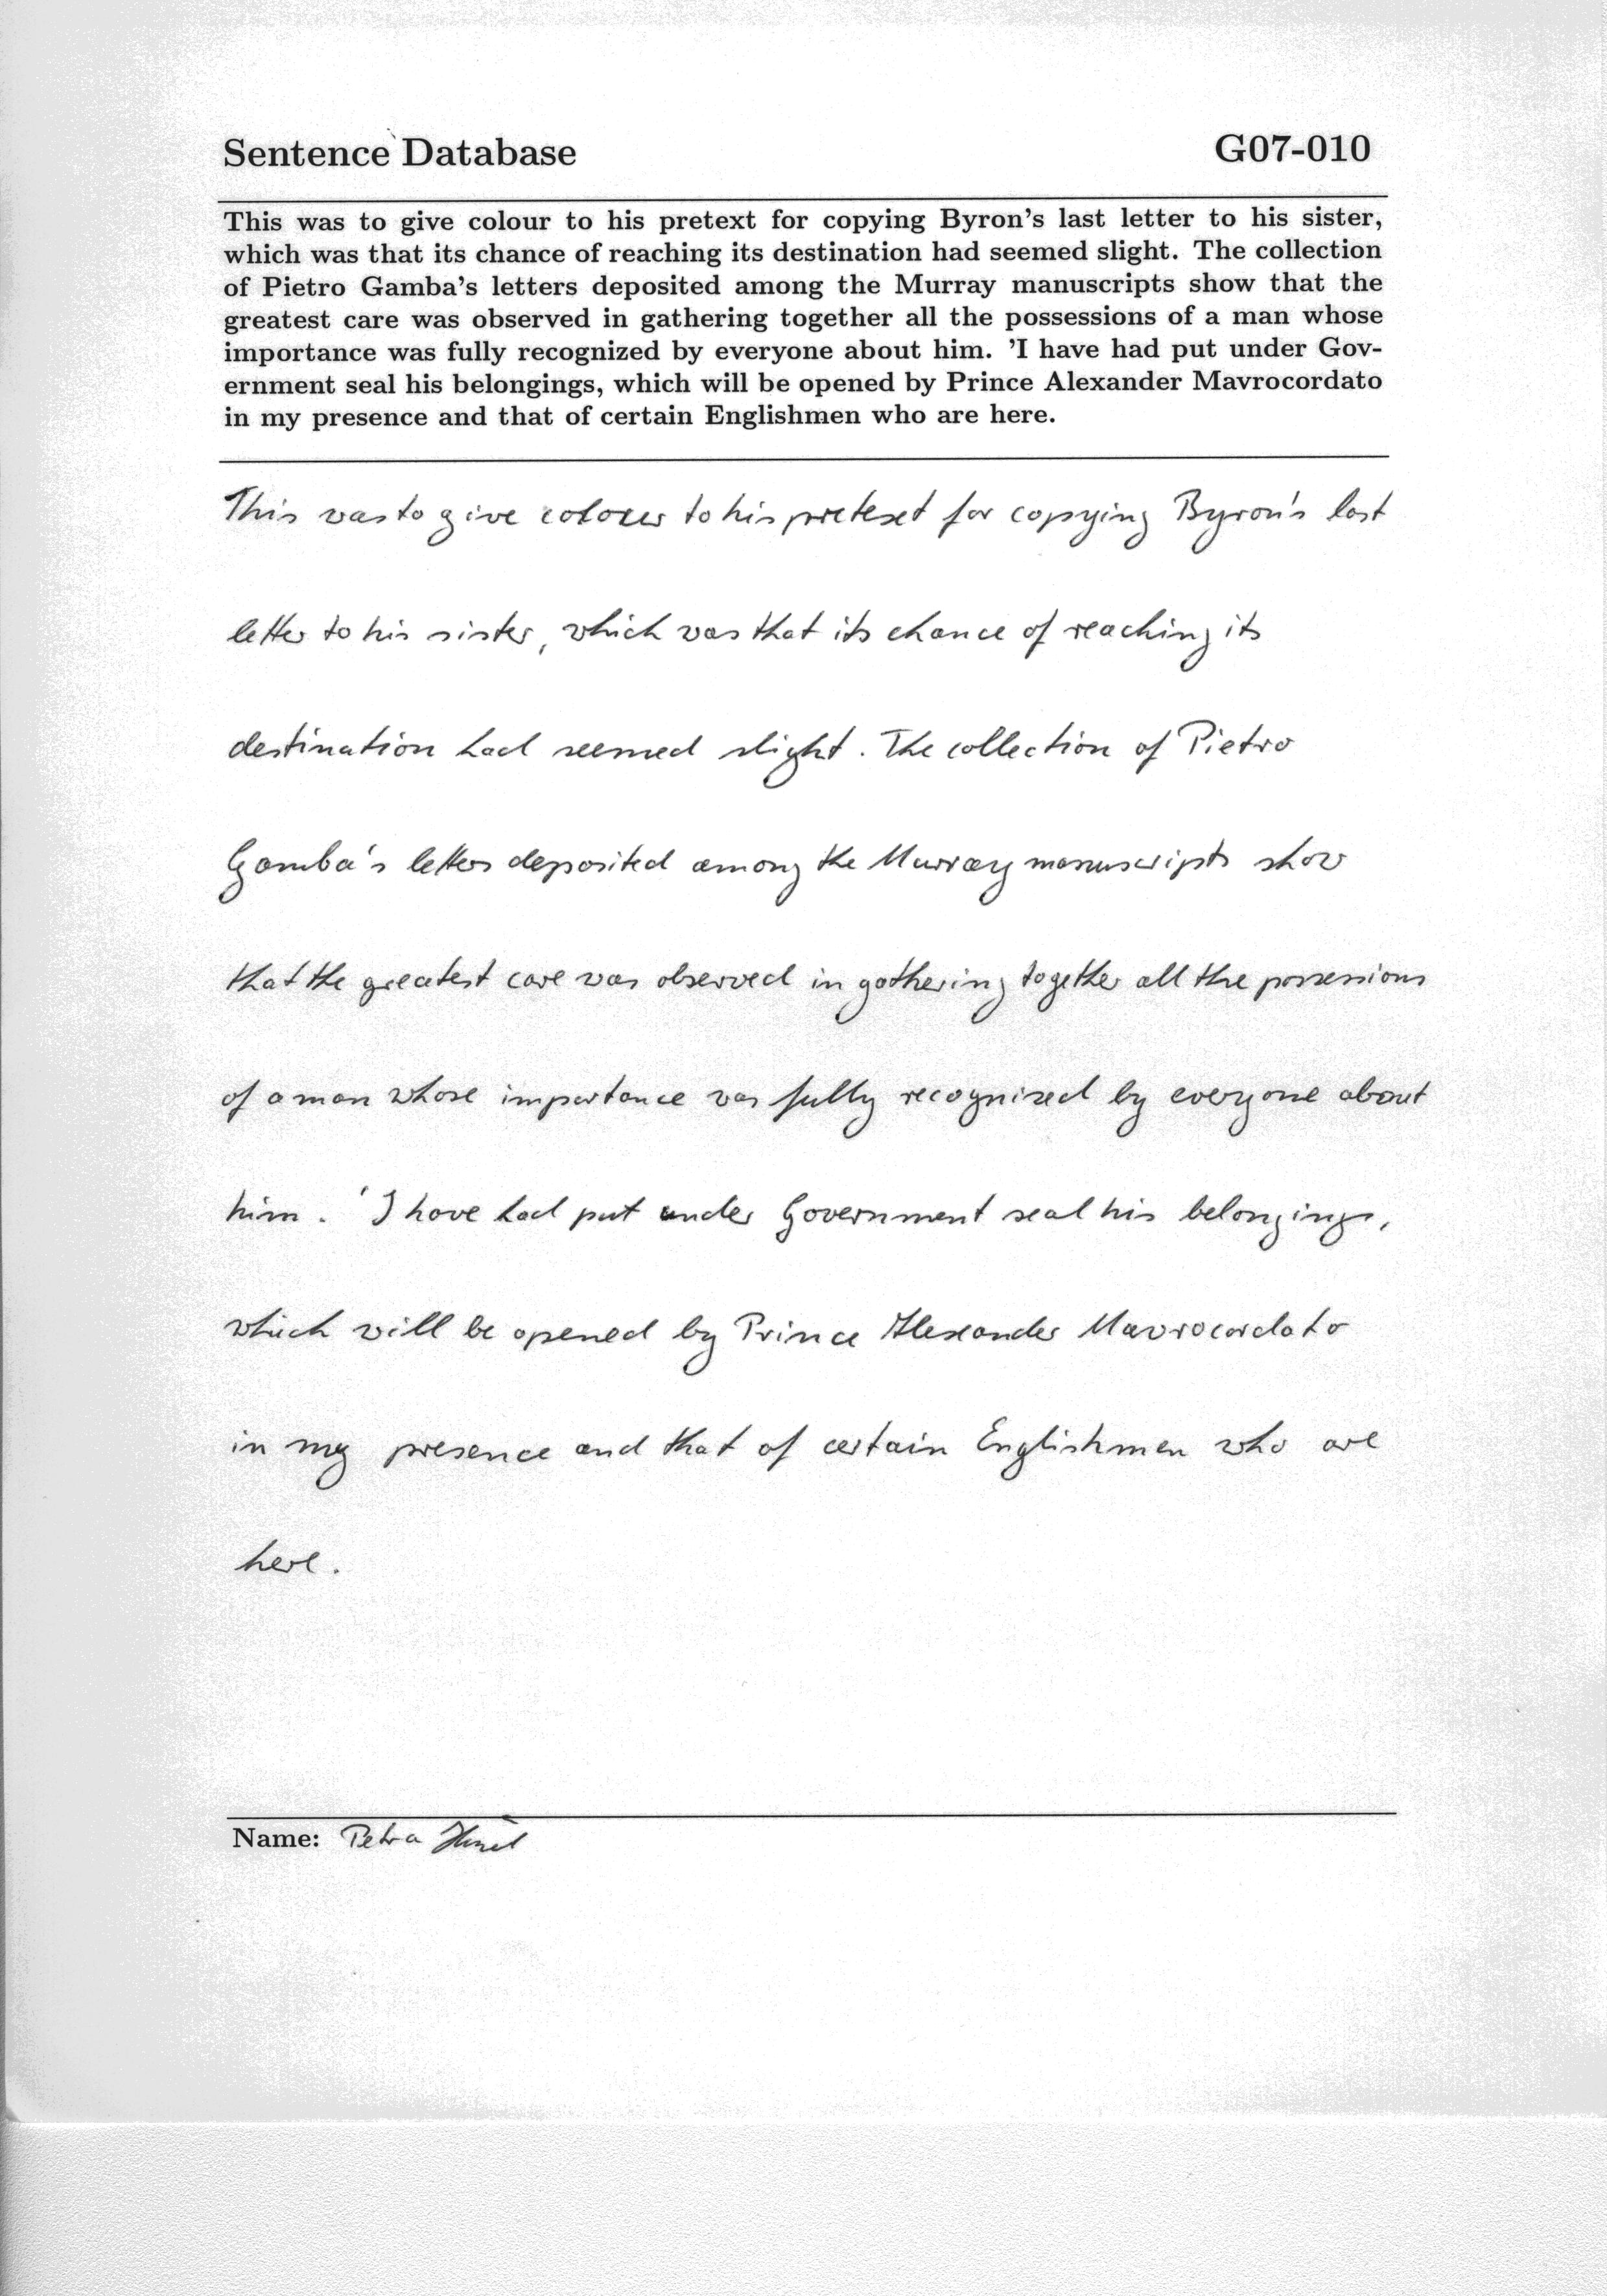 Sentence Database G07-010
This was to give colour to his pretext for copying Byron's last letter to his sister,
which was that its chance of reaching its destination had seemed slight. The collection
of Pietro Gamba's letters deposited among the Murray manuscripts show that the
greatest care was observed in gathering together all the possessions of a man whose
importance was fully recognized by everyone about him. 'I have had put under Gov-
ernment seal his belongings, which will be opened by Prince Alexander Mavrocordato
in my presence and that of certain Englishmen who are here.
This was to give colour to his pretext for copying Byron's last
letter to his sister, which was that its chance of reaching its
destination had seemed slight. The collection of Pietro
Gamba's letters deposited among the Murray manuscripts show
that the greatest care was observed in gathering together all the possessions
of a man whose importance was fully recognized by everyone about
him. 'I have had put under Government seal his belongings,
which will be opened by Prince Alexander Mavrocordato
in my presence and that of certain Englishmen who are
here.
Name: Petra